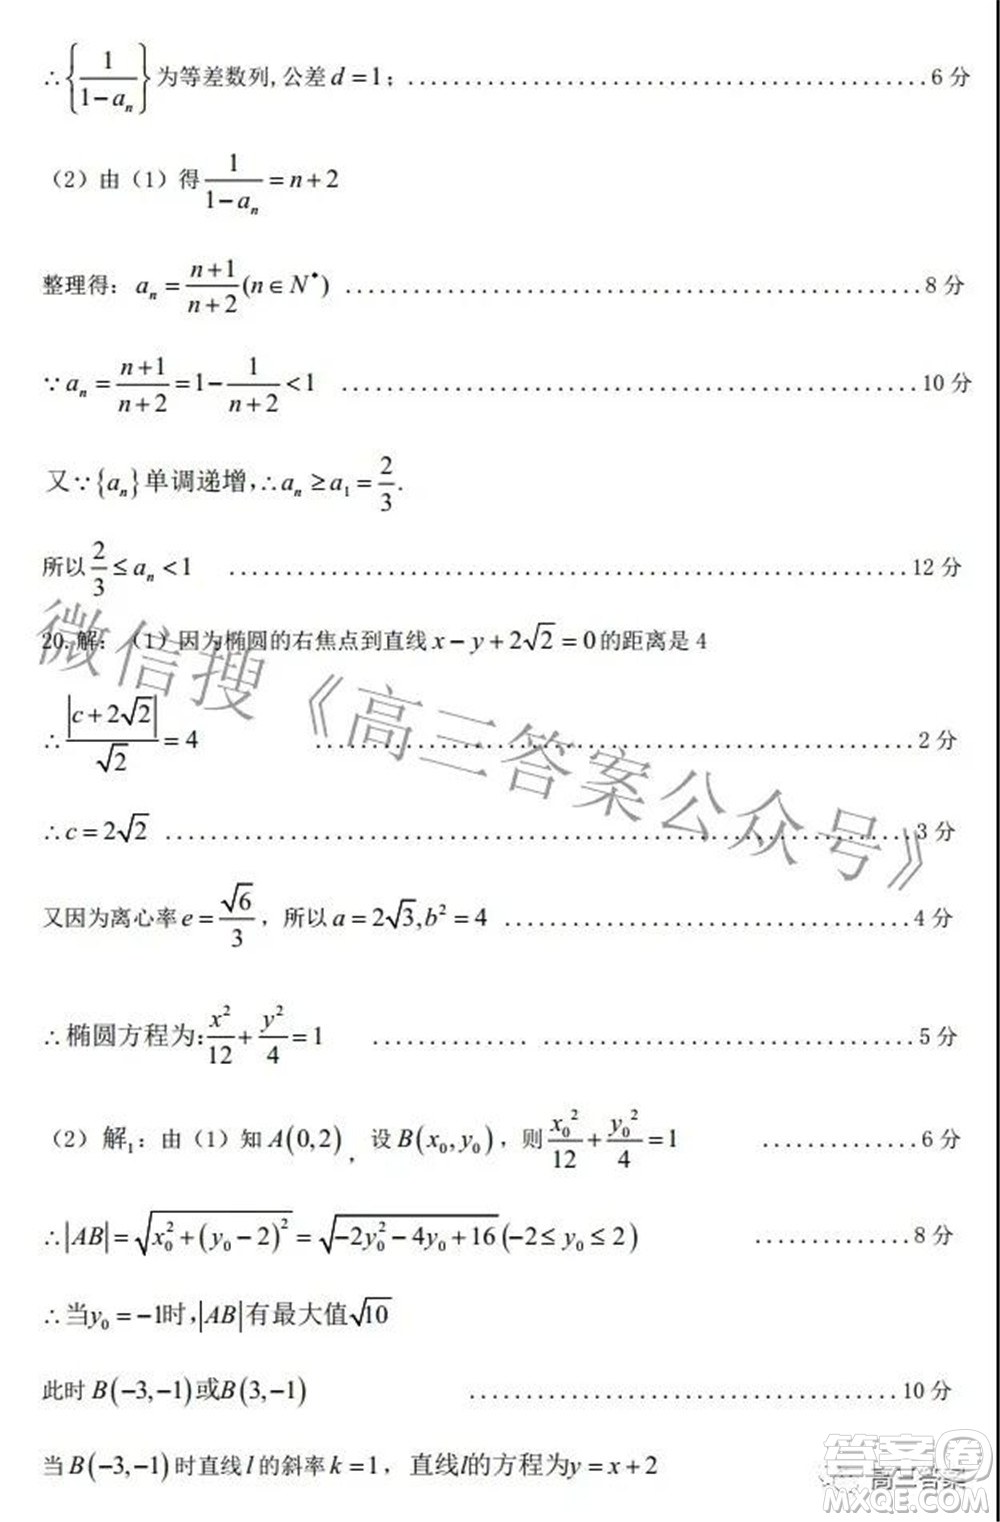 ∴{1/(1−aₙ)}为等差数列,公差 d=1;......................................6分
（2）由（1）得 1/(1−aₙ)=n+2
整理得：aₙ=(n+1)/(n+2)(n∈N*) ........................................8分
∵aₙ=(n+1)/(n+2)=1−1/(n+2)<1 ........................................10分
又∵{aₙ}单调递增,∴aₙ≥a₁=2/3.
所以 2/3≤aₙ<1 ...............................................12分
20.解：（1）因为椭圆的右焦点到直线 x−y+2√2=0的距离是 4
∴|c+2√2|/√2=4 ..........................................2分
∴c=2√2 ....................................................3分
又因为离心率 e=√6/3，所以 a=2√3,b²=4 ............................4分
∴椭圆方程为:x²/12+y²/4=1 ........... ...........................5分
（2）解₁：由（1）知 A(0,2)，设 B(x₀,y₀)，则 x₀²/12+y₀²/4=1 .............6分
∴|AB|=√(x₀²+(y₀−2)²)=√(−2y₀²−4y₀+16)(−2≤y₀≤2) .............8分
∴当y₀=−1时,|AB|有最大值√10
此时 B(−3,−1)或B(3,−1) ..............................10分
当 B(−3,−1)时直线 l 的斜率 k=1，直线l的方程为y=x+2
微信搜《高三答案公众号》
答案卷
高三答案
MXQE.COM